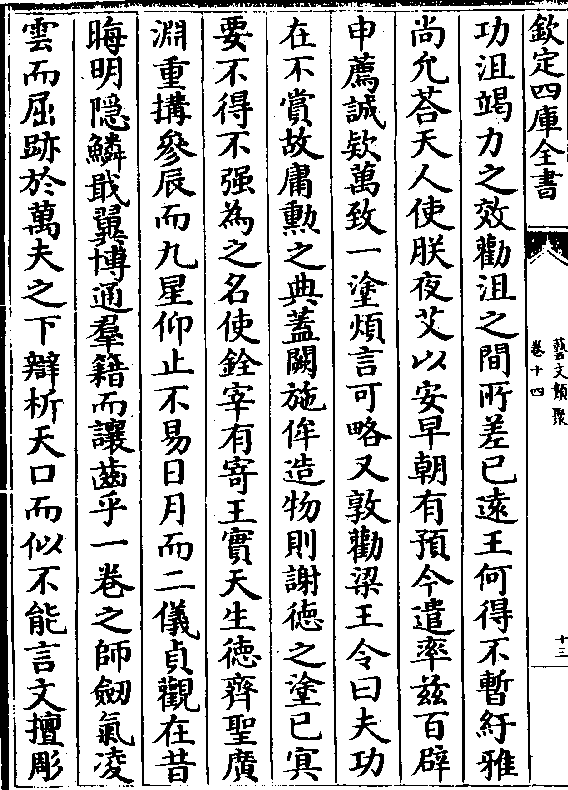 欽定四庫全書
藝文類聚
卷十四
十三
功沮竭力之效勸沮之間所差已遠王何得不暫紆雅
尚允荅天人使朕夜艾以安早朝有預今遣率兹百辟
申薦誠欵萬致一塗煩言可略又敦勸梁王令曰夫功
在不賞故庸勲之典蓋闕施侔造物則謝徳之塗已㝠
要不得不强為之名使銓宰有寄王實天生徳齊聖廣
淵重搆參辰而九星仰止不易日月而二儀貞觀在昔
晦明隠鱗戢翼博通羣籍而讓齒乎一卷之師劒氣凌
雲而屈跡於萬夫之下辯析天口而似不能言文擅彫